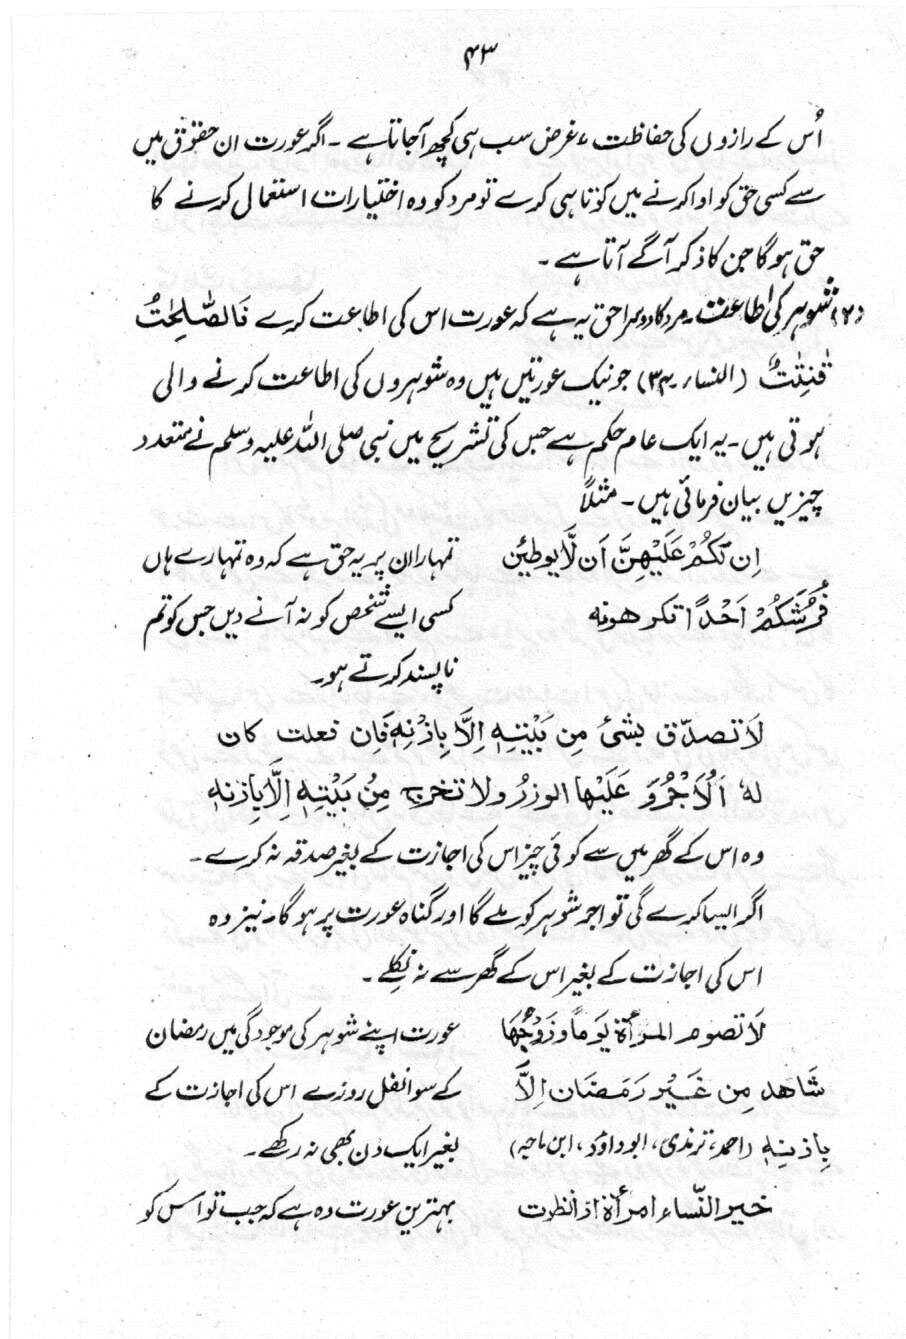 ۴۳
اُس کے رازوں کی حفاظت، غرض سب ہی کچھ آجاتا ہے ۔ اگر عورت ان حقوق میں
سے کسی حق کو ادا کرنے میں کوتاہی کرے تو مرد کو وہ اختیارات استعمال کرنے کا
حق ہوگا جن کا ذکر آگے آتا ہے ۔
(۲) شوہر کی اطاعت ۔ مرد کا دوسرا حق یہ ہے کہ عورت اس کی اطاعت کرے فَالصّٰلِحٰتُ
قٰنِتٰتٌ (النساء ۳۴) جو نیک عورتیں ہیں وہ شوہروں کی اطاعت کرنے والی
ہوتی ہیں ۔ یہ ایک عام حکم ہے جس کی تشریح میں نبی صلی اللہ علیہ وسلم نے متعدد
چیزیں بیان فرمائی ہیں ۔ مثلاً
اِن تَكُمْ عَلَيْهِنَّ اَن لَّا يوطئن تمہارا ان پر یہ حق ہے کہ وہ تمہارے ہاں
فُرُشَكُمْ اَحْدًا تكرهونه کسی ایسے شخص کو نہ آنے دیں جس کو تم
ناپسند کرتے ہو۔
لَا تصدّق بشئ مِن بَيْتِهٖ اِلَّا بِاِذْنِهٖ فَاِن فعلت كان
لهٗ اَلْاَجْرُ وَ عَلَيْها الوزرُ ولا تخرج مِنْ بَيْتِهٖ اِلَّا بِاِذنهٖ
وہ اس کے گھر میں سے کوئی چیز اس کی اجازت کے بغیر صدقہ نہ کرے ۔
اگر ایسا کرے گی تو اجر شوہر کو ملے گا اور گناہ عورت پر ہوگا۔ نیز وہ
اس کی اجازت کے بغیر اس کے گھر سے نہ نکلے ۔
لَا تصوم المرأة يوماً وَزَوْجُهَا عورت اپنے شوہر کی موجودگی میں رمضان
شَاهد مِن غَيْر رَمَضَان اِلَّا کے سوا نفل روزے اس کی اجازت کے
باذنهٖ (احمد، ترمذی، ابوداؤد، ابن ماجہ) بغیر ایک دن بھی نہ رکھے ۔
خير النّساء امرأة اذا نظرت بہترین عورت وہ ہے کہ جب تو اس کو